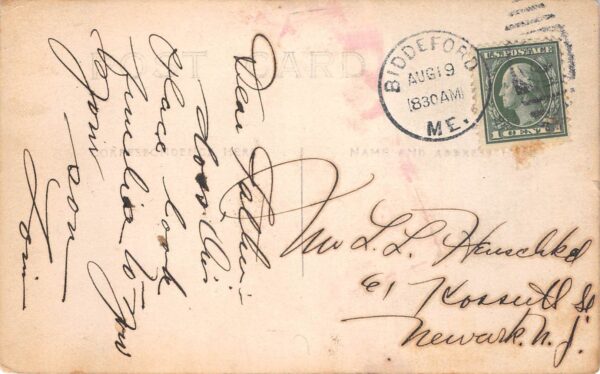 POST CARD
CORRESPONDENCE HERE
NAME AND ADDRESS HERE
BIDDEFORD
AUG 19
830AM
ME.
U.S. POSTAGE
1 CENT 1
Dear Father
Does this
place look
familiar to you
Your
son
Mr L. L. Henschkel
61 Kossuth St.
Newark. N. J.